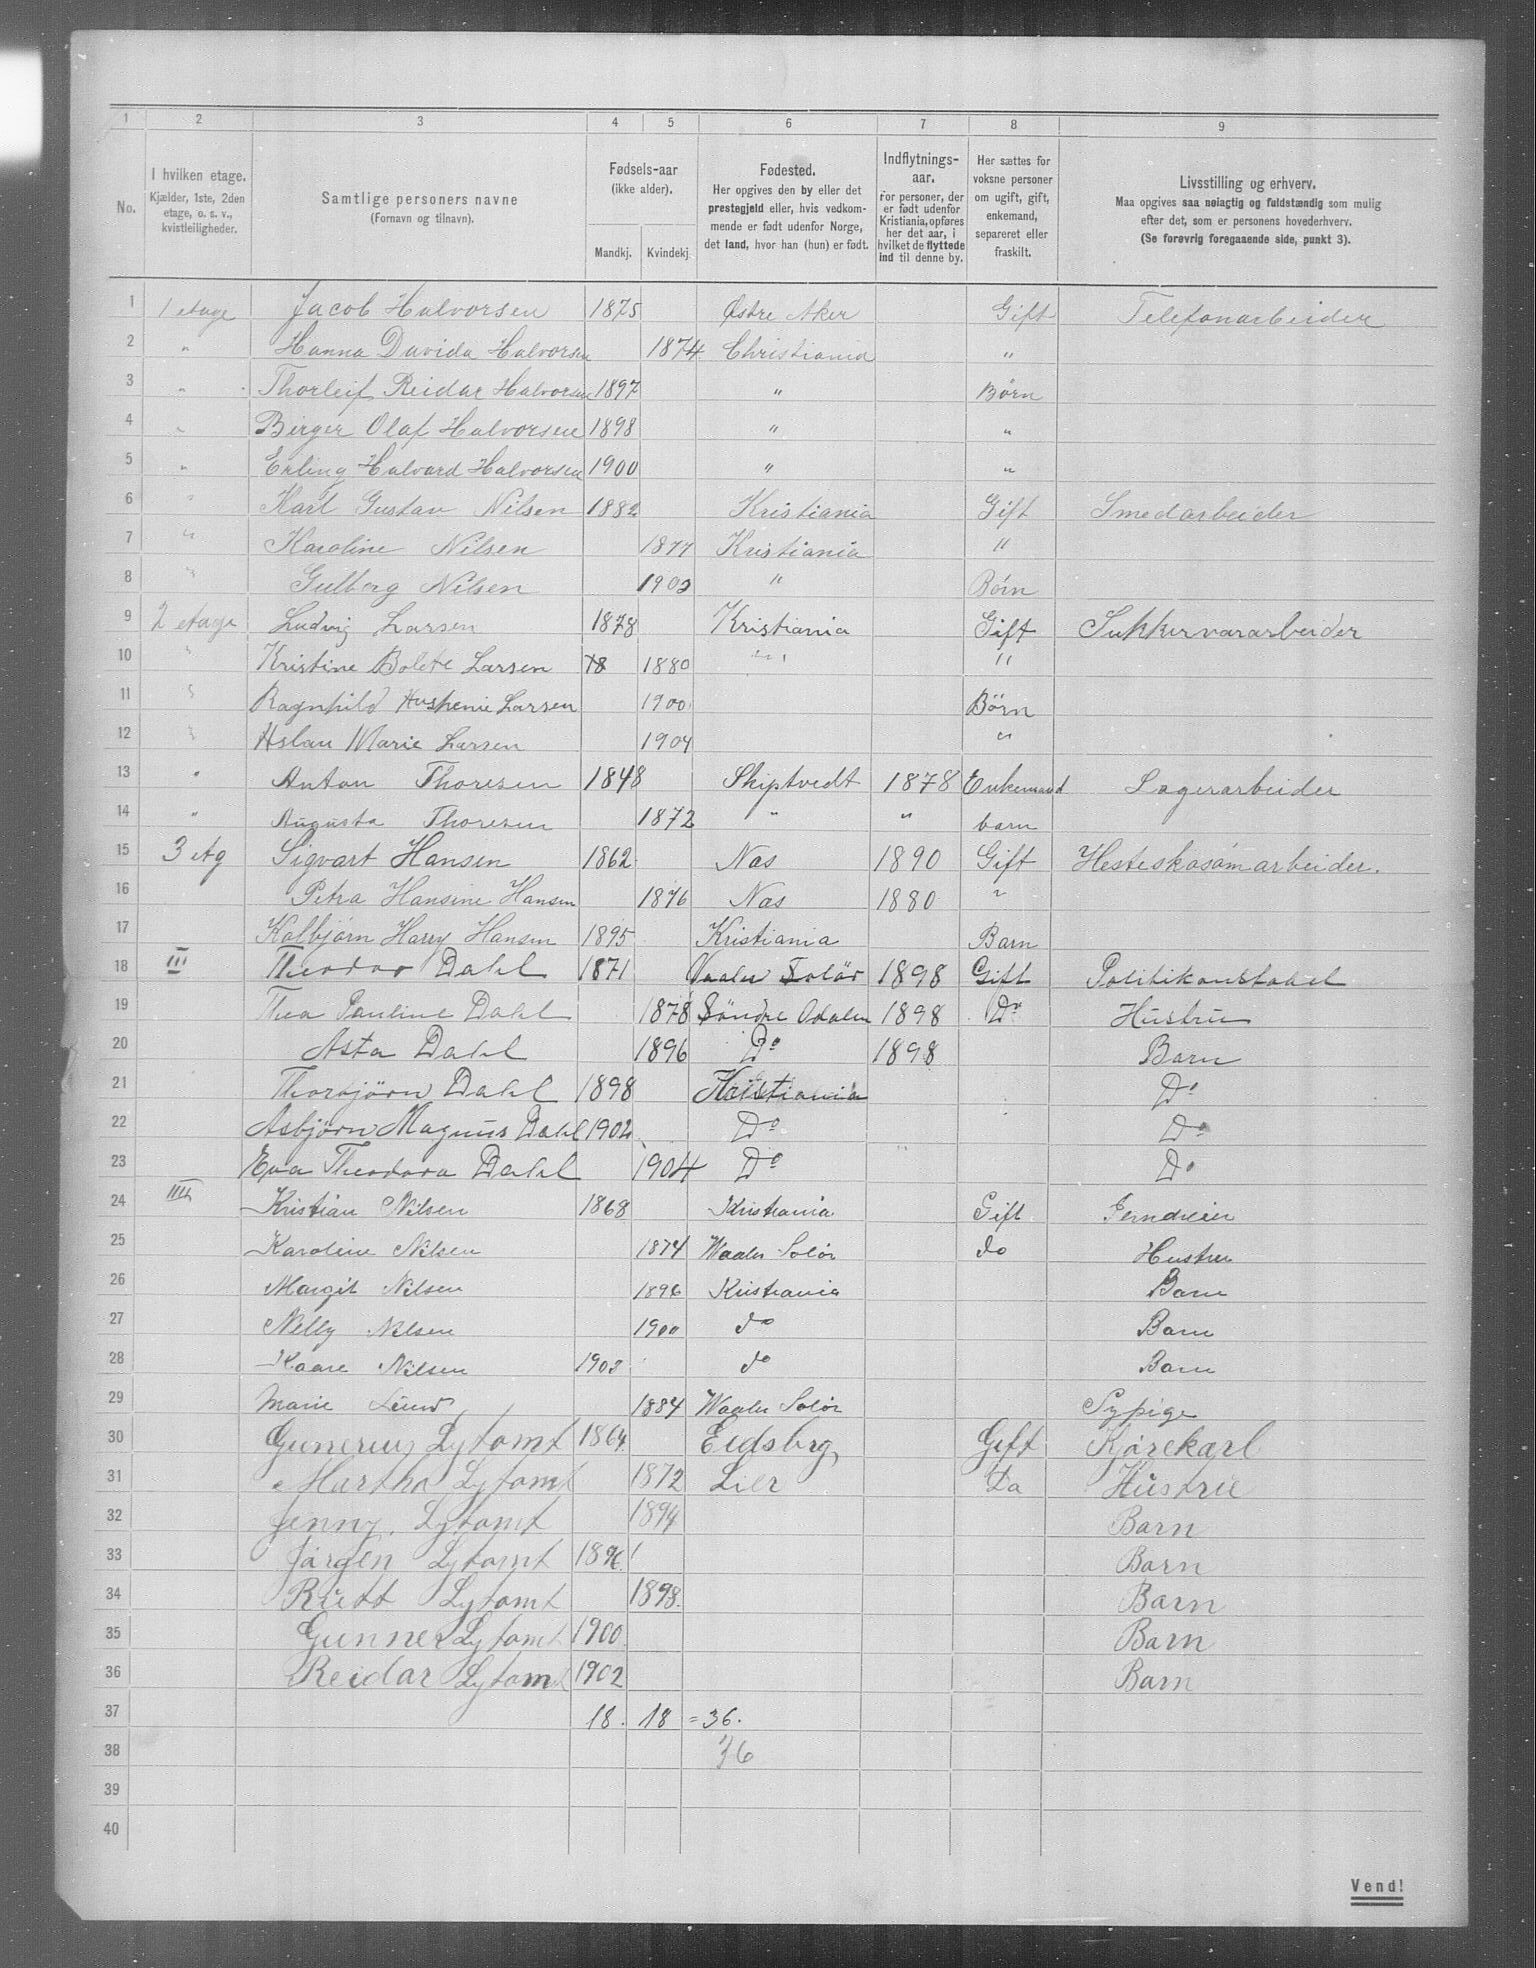 1 2 3 4 5 6 7 8 9
No.
I hvilken etage.
Kjælder, 1ste, 2den
etage, o. s. v.,
kvistleiligheder.
Samtlige personers navne
(Fornavn og tilnavn).
Fødsels-aar
(ikke alder).
Mandkj. Kvindekj.
Fødested.
Her opgives den by eller det
prestegjeld eller, hvis vedkom-
mende er født udenfor Norge,
det land, hvor han (hun) er født.
Indflytnings-
aar.
For personer, der
er født udenfor
Kristiania, opføres
her det aar, i
hvilket de flyttede
ind til denne by.
Her sættes for
voksne personer
om ugift, gift,
enkemand,
separeret eller
fraskilt.
Livsstilling og erhverv.
Maa opgives saa nøiagtig og fuldstændig som mulig
efter det, som er personens hovederhverv.
(Se forøvrig foregaaende side, punkt 3).
1 1 etage Jacob Halvorsen 1875 Østre Aker Gift Telefonarbeider
2 " Hanna Davida Halvorsen 1874 Christiania "
3 " Thorleif Reidar Halvorsen 1897 " Börn
4 " Birger Olaf Halvorsen 1898 " "
5 " Erling Halvard Halvorsen 1900 " "
6 " Karl Gustav Nilsen 1882 Kristiania Gift Smedarbeider
7 " Karoline Nilsen 1877 Kristiania "
8 " Gulborg Nilsen 1903 " Börn
9 2 etage Ludvig Larsen 1878 Kristiania Gift Sukkervararbeider
10 " Kristine Bolete Larsen 78 1880 " "
11 " Ragnhild Larsen 1900 Börn
12 " Marie Larsen 1904 "
13 " Anton Thoresen 1848 Skiptvedt 1878 Enkemand Lagerarbeider
14 " Augusta Thoresen 1872 " " barn
15 3 etg Sigvart Hansen 1862 Nas 1890 Gift Hesteskosömarbeider.
16 Petra Hansine Hansen 1876 Nas 1880 "
17 Kolbjörn Harry Hansen 1895 Kristiania Barn
18 III Theodor Dahl 1871 Vaaler Solör 1898 Gift Politikonstabel
19 Thea Pauline Dahl 1878 Söndre Odalen 1898 Do Hustru
20 Asta Dahl 1896 Do 1898 Barn
21 Thorbjörn Dahl 1898 Kristiania Do
22 Asbjörn Magnus Dahl 1902 Do Do
23 Eva Theodora Dahl 1904 Do Do
24 IIII Kristian Nilsen 1868 Kristiania Gift
25 Karoline Nilsen 1874 Waaler Solör do Hustru
26 Margit Nilsen 1896 Kristiania Barn
27 Nelly Nilsen 1900 do Barn
28 Kaare Nilsen 1903 do Barn
29 Marie Lund 1884 Waaler Solör Sypige
30 Gunerius Lytomt 1864 Eidsberg Gift Kjörekarl
31 Martha Lytomt 1872 Lier Do Hüstrü
32 Jenny Lytomt 1894 Barn
33 Jörgen Lytomt 1896 Barn
34 Rutt Lytomt 1898. Barn
35 Gunner Lytomt 1900 Barn
36 Reidar Lytomt 1902 Barn
37 18. 18 = 36.
38 36
39
40
Vend!